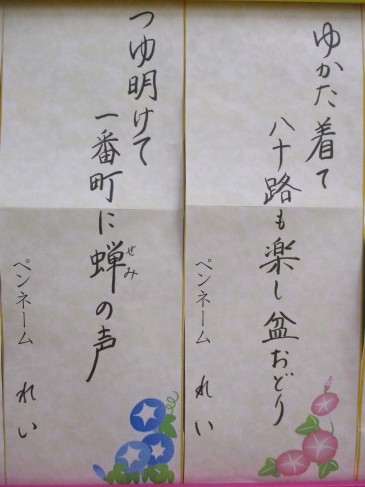 ゆかた着て
八十路も楽し盆おどり
ペンネーム れい
つゆ明けて
一番町に蝉の声
せみ
ペンネーム れい